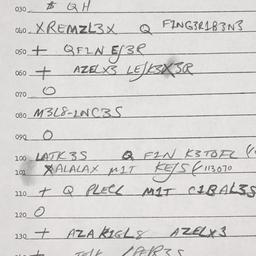 030 $ QH
040. XREMZL3X Q FINGER1B3N3
050 + QFIN E/3R
060 + AZELX3 LE/K3X3Q
070 O
080 M3L8-LNC3S
090 O
100 LATK3S Q FIN K3TOFL
101 XALALAX M1T KE/S (113070
110 + Q PLECL M1T C1BAL3S
120 O
130 + AZAK1GL8 AZELX3